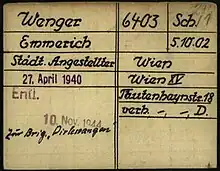 Wenger 6403 Sch
Emmerich 5.10.02
Städt. Angestellter Wien
27. April 1940 Wien XV
Entl. Tautenhaynstr. 18
10. Nov. 1944 verh. -,- D.
Zur Brig. „Dirlewanger"